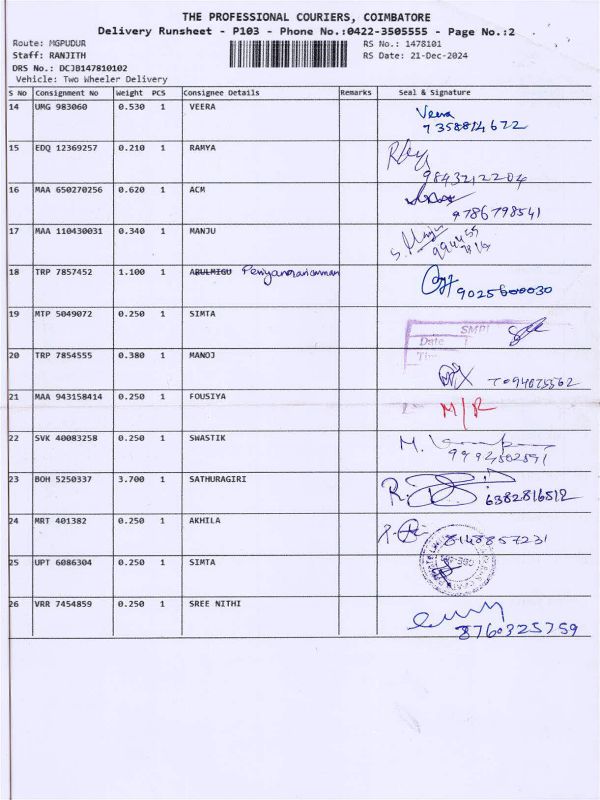 THE PROFESSIONAL COURIERS, COIMBATORE
Delivery Runsheet - P103 - Phone No.:0422-3505555 - Page No.:2
Route: MGPUDUR RS No.: 1478101
Staff: RANJITH RS Date: 21-Dec-2024
DRS No.: DCJB147810102
Vehicle: Two Wheeler Delivery
S No Consignment No Weight PCS Consignee Details Remarks Seal & Signature
14 UMG 983060 0.530 1 VEERA Veera
7358814672
15 EDQ 12369257 0.210 1 RAMYA
9843212204
16 MAA 650270256 0.620 1 ACM
9786798541
17 MAA 110430031 0.340 1 MANJU
18 TRP 7857452 1.100 1 ABULMIGU
9025600030
19 MTP 5049072 0.250 1 SIMTA
SMPI
Date
Tim
20 TRP 7854555 0.380 1 MANOJ
21 MAA 943158414 0.250 1 FOUSIYA M/R
22 SVK 40083258 0.250 1 SWASTIK
23 BOH 5250337 3.700 1 SATHURAGIRI
6382816512
24 MRT 401382 0.250 1 AKHILA
8148857231
25 UPT 6086304 0.250 1 SIMTA
26 VRR 7454859 0.250 1 SREE NITHI
8760325759